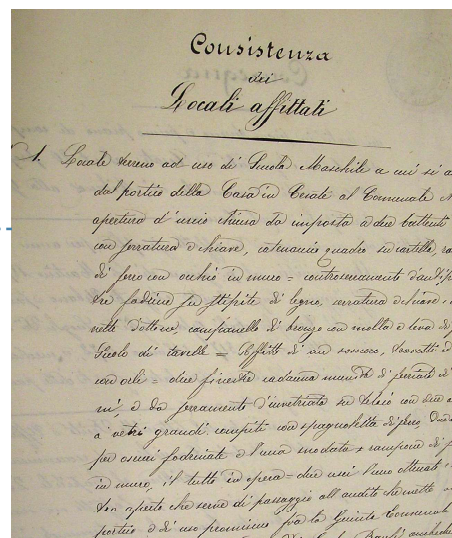 Consistenza
dei
Locali affittati
1. Locale terreno ad uso di Scuola Maschile a cui si a
dal portico della Casa in Cerate al Comunale N
apertura d'uscio chiusa da imposta a due battenti
con serratura e chiave, catenaccio quadro su cartelle,
di ferro con occhio in muro = controserramento d'antip
tre fodrine su stipite di legno, serratura e chiave
nette d'ottone, campanello di bronzo con molla e leva di
Suolo di tavelle = Soffitto di un sommero, travetti
con orli = due finestre cadauna munita di ferriate di
ni, e da serramento d'invetriata su telaio con due
a vetri grandi compiti con spagnoletta di ferro
per oscuri fodrinati e l'una snodata e rampone di f
in muro, il tutto in opera = due usci l'uno otturato
don aperto che serve di passaggio all'andito che mette
portico e di uso promiscuo fra la Giunta Comunal